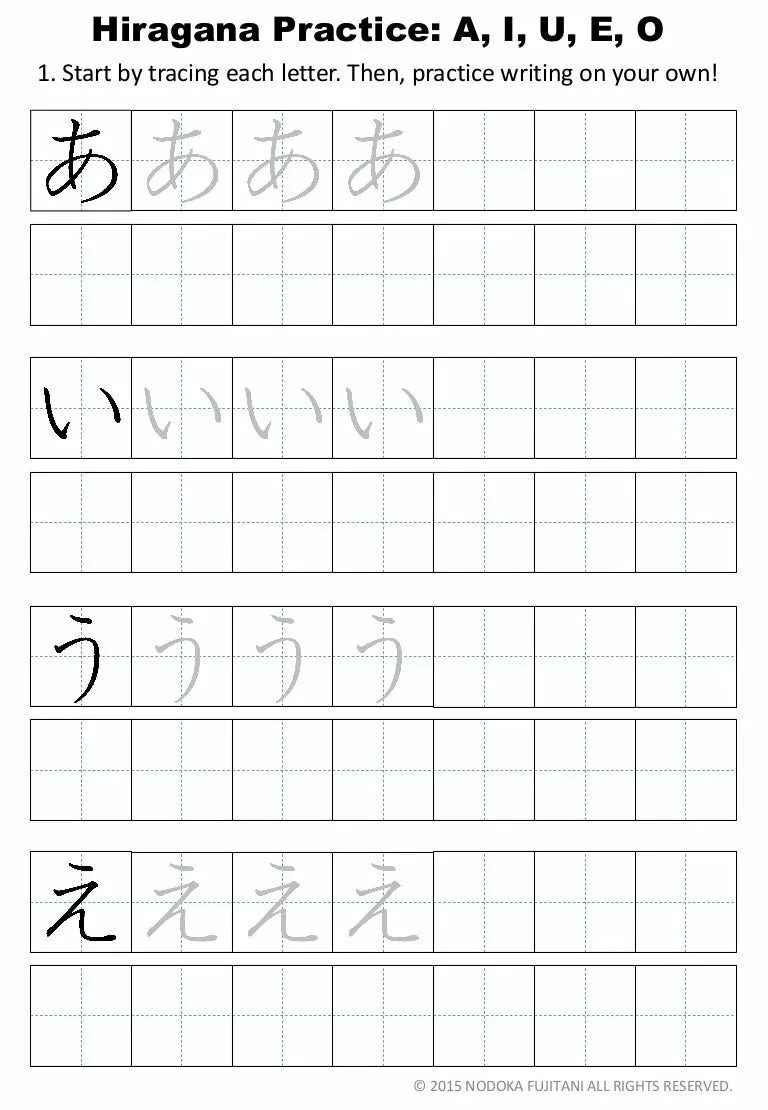 Hiragana Practice: A, I, U, E, O
1. Start by tracing each letter. Then, practice writing on your own!
あ あ あ あ
い い い い
う う う う
え え え え
© 2015 NODOKA FUJITANI ALL RIGHTS RESERVED.